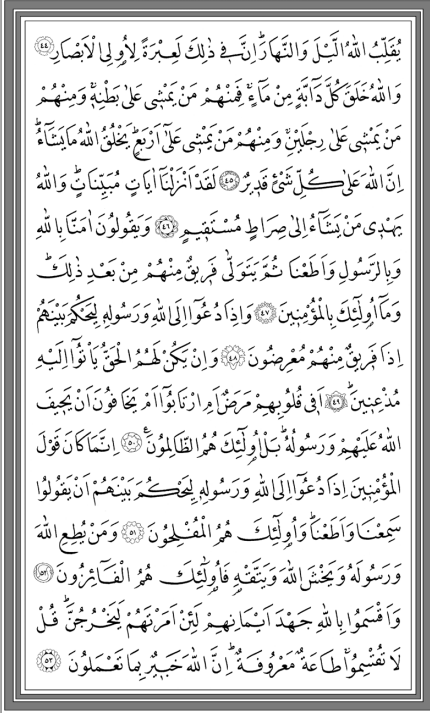 يُقَلِّبُ اللّٰهُ الَّيْلَ وَالنَّهَارَۜ اِنَّ ف۪ي ذٰلِكَ لَعِبْرَةً لِاُو۬لِي الْاَبْصَارِ ﴿٤٤﴾
وَاللّٰهُ خَلَقَ كُلَّ دَٓابَّةٍ مِنْ مَٓاءٍۚ فَمِنْهُمْ مَنْ يَمْش۪ي عَلٰى بَطْنِه۪ۚ وَمِنْهُمْ
مَنْ يَمْش۪ي عَلٰى رِجْلَيْنِۚ وَمِنْهُمْ مَنْ يَمْش۪ي عَلٰٓى اَرْبَعٍۜ يَخْلُقُ اللّٰهُ مَا يَشَٓاءُۜ
اِنَّ اللّٰهَ عَلٰى كُلِّ شَيْءٍ قَد۪يرٌ ﴿٤٥﴾ لَقَدْ اَنْزَلْنَٓا اٰيَاتٍ مُبَيِّنَاتٍۜ وَاللّٰهُ
يَهْد۪ي مَنْ يَشَٓاءُ اِلٰى صِرَاطٍ مُسْتَق۪يمٍ ﴿٤٦﴾ وَيَقُولُونَ اٰمَنَّا بِاللّٰهِ
وَبِالرَّسُولِ وَاَطَعْنَا ثُمَّ يَتَوَلّٰى فَر۪يقٌ مِنْهُمْ مِنْ بَعْدِ ذٰلِكَۜ
وَمَٓا اُو۬لٰٓئِكَ بِالْمُؤْمِن۪ينَ ﴿٤٧﴾ وَاِذَا دُعُٓوا اِلَى اللّٰهِ وَرَسُولِه۪ لِيَحْكُمَ بَيْنَهُمْ
اِذَا فَر۪يقٌ مِنْهُمْ مُعْرِضُونَ ﴿٤٨﴾ وَاِنْ يَكُنْ لَهُمُ الْحَقُّ يَأْتُٓوا اِلَيْهِ
مُذْعِن۪ينَۜ ﴿٤٩﴾ اَف۪ي قُلُوبِهِمْ مَرَضٌ اَمِ ارْتَابُٓوا اَمْ يَخَافُونَ اَنْ يَح۪يفَ
اللّٰهُ عَلَيْهِمْ وَرَسُولُهُۜ بَلْ اُو۬لٰٓئِكَ هُمُ الظَّالِمُونَ۟ ﴿٥٠﴾ اِنَّمَا كَانَ قَوْلَ
الْمُؤْمِن۪ينَ اِذَا دُعُٓوا اِلَى اللّٰهِ وَرَسُولِه۪ لِيَحْكُمَ بَيْنَهُمْ اَنْ يَقُولُوا
سَمِعْنَا وَاَطَعْنَاۜ وَاُو۬لٰٓئِكَ هُمُ الْمُفْلِحُونَ ﴿٥١﴾ وَمَنْ يُطِعِ اللّٰهَ
وَرَسُولَهُ وَيَخْشَ اللّٰهَ وَيَتَّقْهِ فَاُو۬لٰٓئِكَ هُمُ الْفَٓائِزُونَ ﴿٥٢﴾
وَاَقْسَمُوا بِاللّٰهِ جَهْدَ اَيْمَانِهِمْ لَئِنْ اَمَرْتَهُمْ لَيَخْرُجُنَّۜ قُلْ
لَا تُقْسِمُواۚ طَاعَةٌ مَعْرُوفَةٌۜ اِنَّ اللّٰهَ خَب۪يرٌ بِمَا تَعْمَلُونَ ﴿٥٣﴾